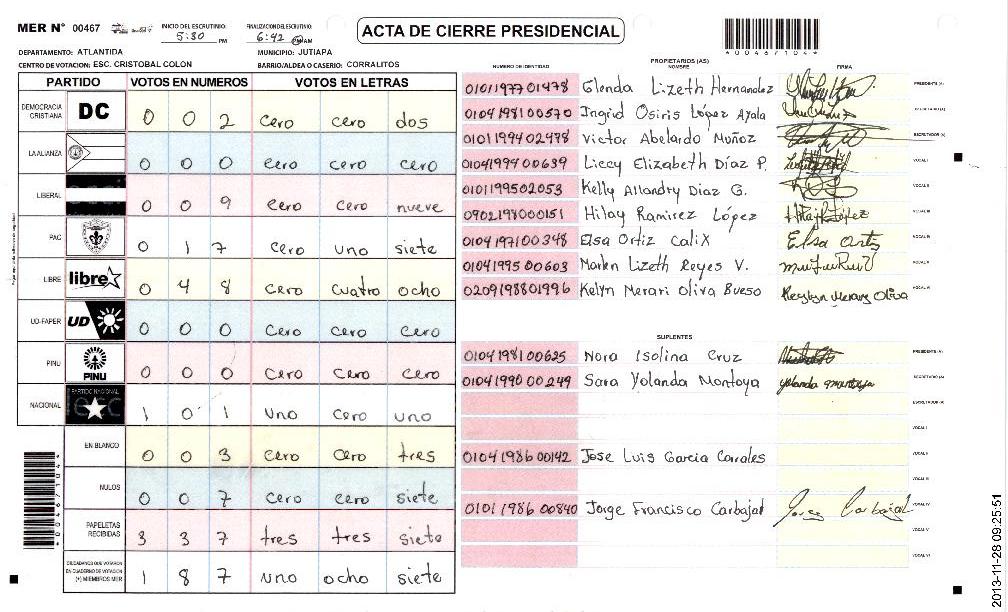 MER Nº 00467
INICIO DEL ESCRUTINIO: 5:30 PM
FINALIZACION DEL ESCRUTINIO: 6:42 PM AM
ACTA DE CIERRE PRESIDENCIAL
00467104
DEPARTAMENTO: ATLANTIDA
MUNICIPIO: JUTIAPA
CENTRO DE VOTACION: ESC. CRISTOBAL COLON
BARRIO/ALDEA O CASERIO: CORRALITOS
PARTIDO VOTOS EN NUMEROS VOTOS EN LETRAS
DEMOCRACIA CRISTIANA DC 0 0 2 cero cero dos
LA ALIANZA 0 0 0 cero cero cero
LIBERAL 0 0 9 cero cero nueve
PAC 0 1 7 cero uno siete
LIBRE libre 0 4 8 cero cuatro ocho
UD-FAPER UD 0 0 0 cero cero cero
PINU PINU 0 0 0 cero cero cero
NACIONAL PARTIDO NACIONAL 1 0 1 uno cero uno
EN BLANCO 0 0 3 cero cero tres
NULOS 0 0 7 cero cero siete
PAPELETAS RECIBIDAS 3 3 7 tres tres siete
CIUDADANOS QUE VOTARON EN CUADERNO DE VOTACION (+) MIEMBROS MER 1 8 7 uno ocho siete
00467104
PROPIETARIOS (AS)
NUMERO DE IDENTIDAD NOMBRE FIRMA
0101197701478 Glenda Lizeth Hernandez PRESIDENTE (A)
0104198100570 Ingrid Osiris López Ayala SECRETARIO (A)
0101199402478 Victor Abelardo Muñoz ESCRUTADOR (A)
0104199400639 Liccy Elizabeth Díaz P. VOCAL I
0101199502053 Kelly Allandry Diaz G. VOCAL II
0902198000151 Hilay Ramirez López VOCAL III
0104197100348 Elsa Ortiz Calix Elsa Ortiz VOCAL IV
0104199500603 Marlen Lizeth Reyes V. VOCAL V
0209198801996 Kelyn Merari Oliva Bueso Keyslyn Merary Oliva VOCAL VI
SUPLENTES
0104198100625 Nora Isolina Cruz PRESIDENTE (A)
0104199000249 Sara Yolanda Montoya yolanda montoya SECRETARIO (A)
ESCRUTADOR (A)
VOCAL I
0104198600142 Jose Luis Garcia Corrales VOCAL II
VOCAL III
0101198600840 Jorge Francisco Carbajal Jorge Carbajal VOCAL IV
VOCAL V
VOCAL VI
2013-11-28 09:25:51